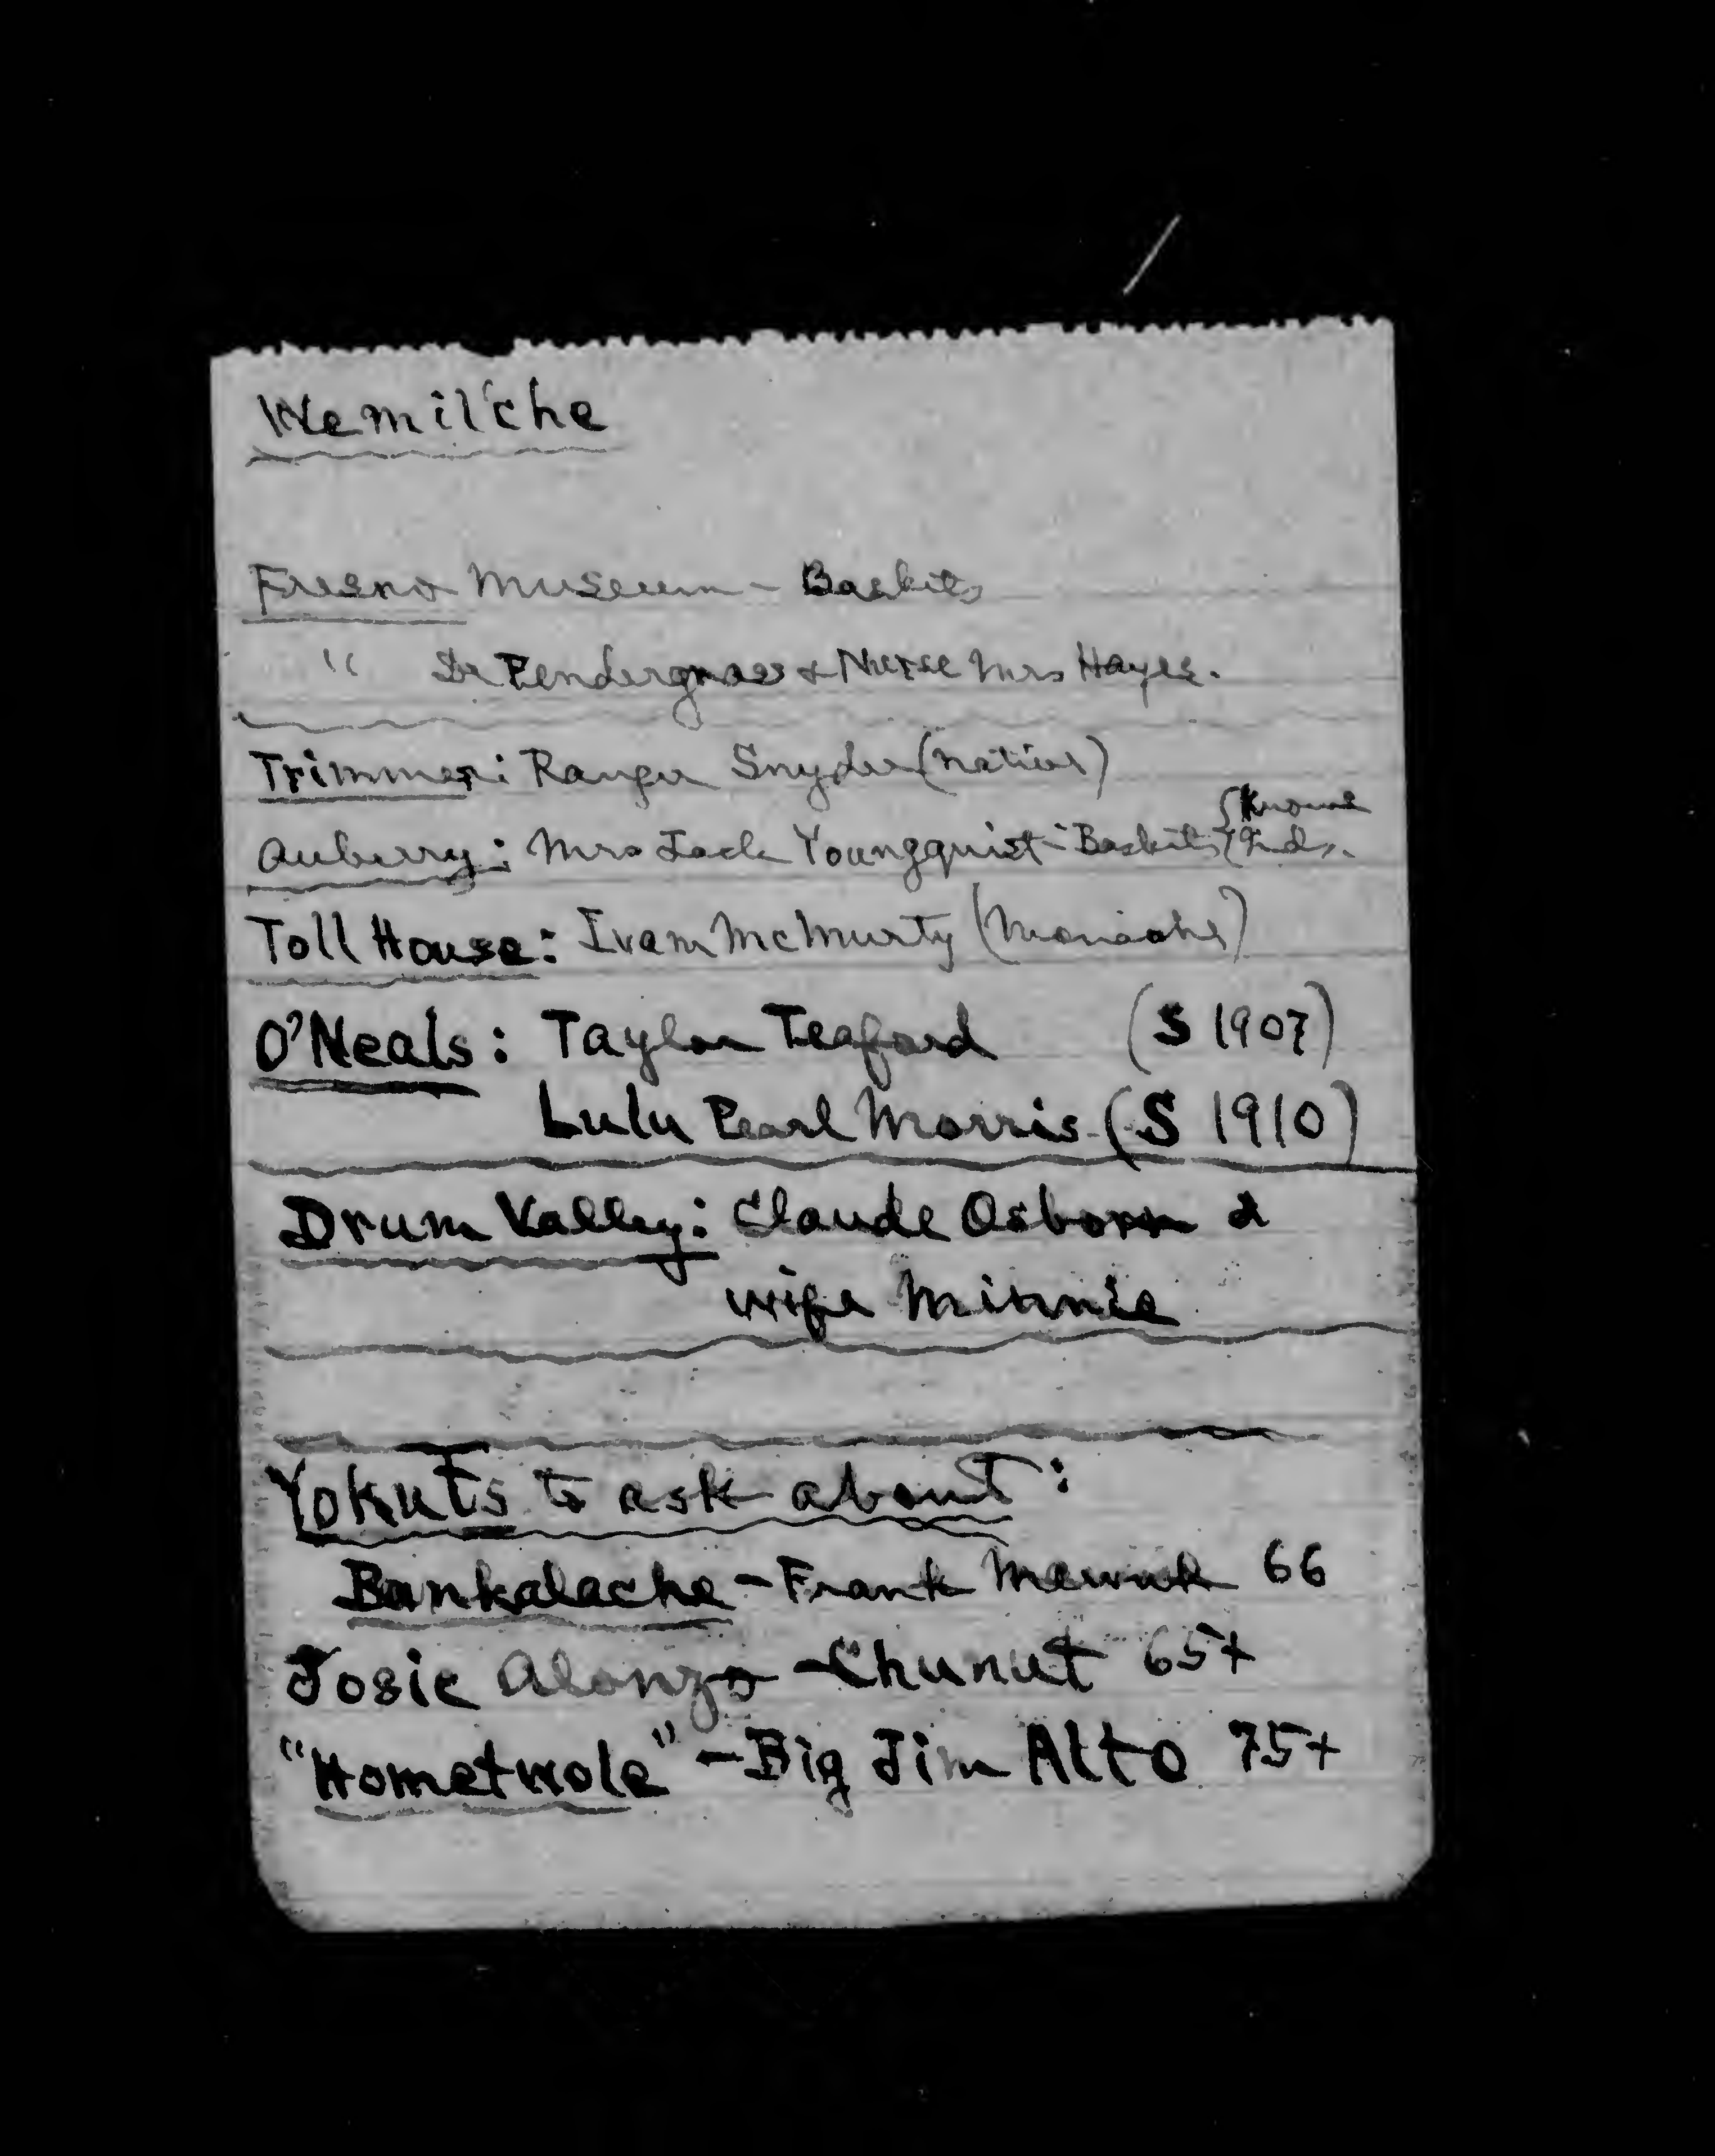 Wemil'che
Fresno Museum - Baskets
" Dr Pendergrass & Nurse Mrs Hayes.
Trimmer: Ranger Snyder (native)
Auberry: Mrs Jack Youngquist - Baskets {Knows Inds.
Toll House: Ivam McMurty (Monache)
O'Neals: Taylor Teaford (S 1907)
Lulu Pearl Morris (S 1910)
Drum Valley: Claude Osborn &
wife Minnie
Yokuts to ask about:
Bankalache - Frank 66
Josie Alonzo - Chunut 65+
"Hometwole" - Big Jim Alto 75+